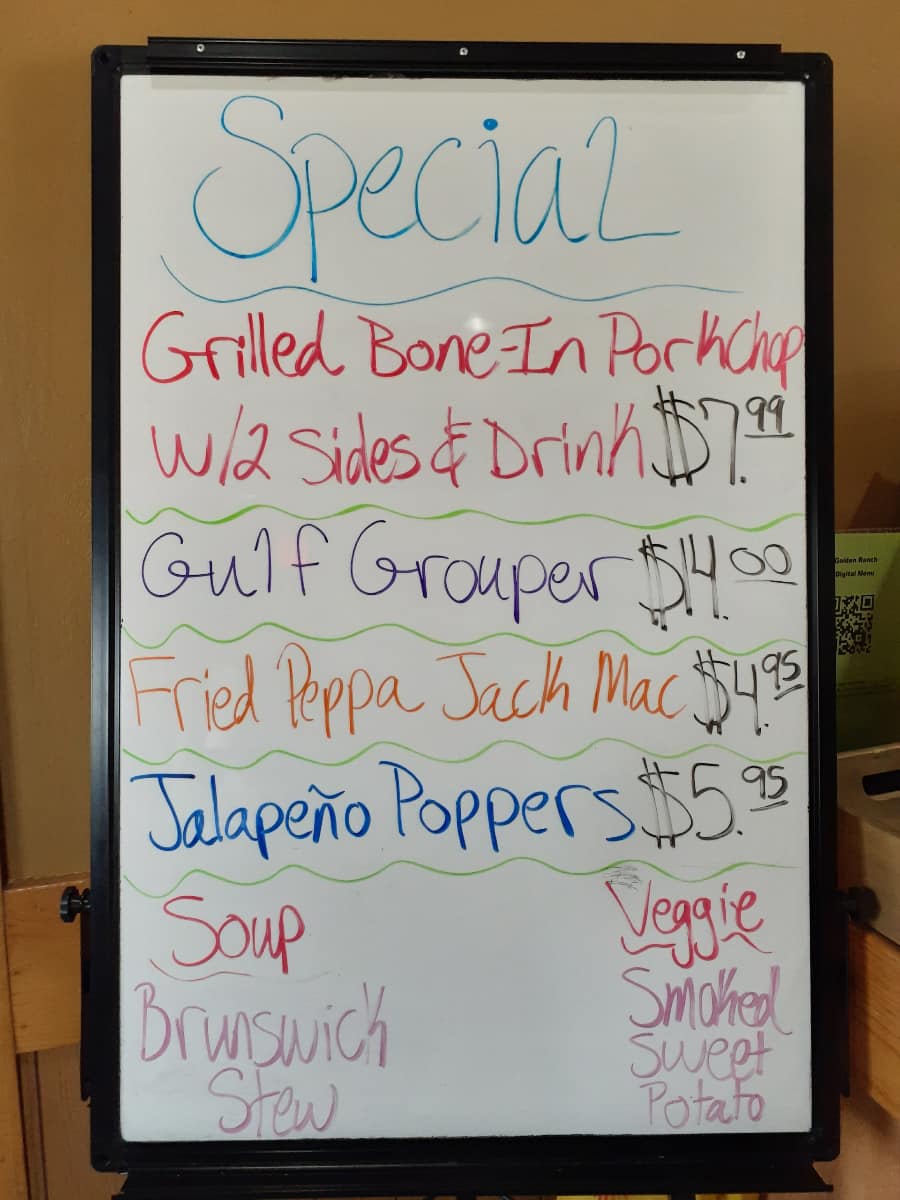 Special
Grilled Bone-In Pork Chop
W/2 Sides & Drink $7.99
Gulf Grouper $14.00
Fried Peppa Jack Mac $4.95
Jalapeño Poppers $5.95
Soup
Brunswick
Stew
Veggie
Smoked
Sweet
Potato
Golden Ranch
Digital Menu